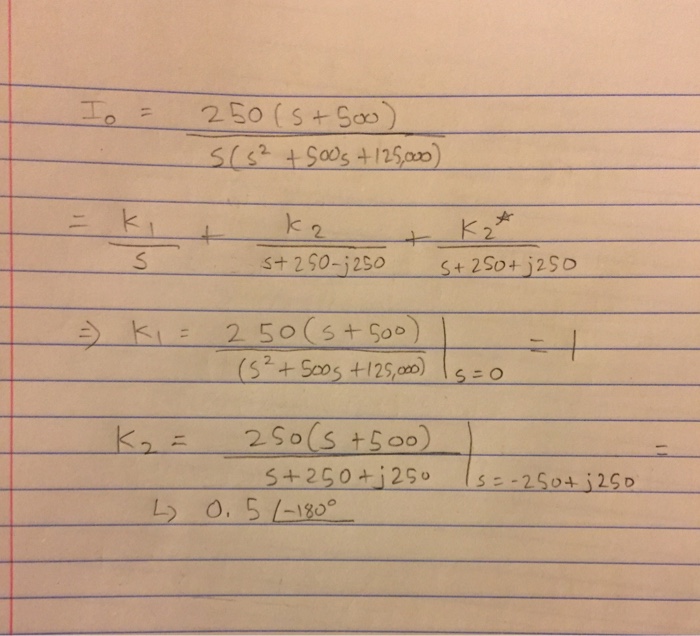 I₀ = 250(s+500) / s(s² + 500s + 125,000)
= K₁/s + K₂/(s+250-j250) + K₂*/(s+250+j250)
⇒ K₁ = 250(s+500) / (s² + 500s + 125,000) |s=0 = 1
K₂ = 250(s+500) / (s+250+j250) |s=-250+j250 =
↳ 0.5 ∠-180°